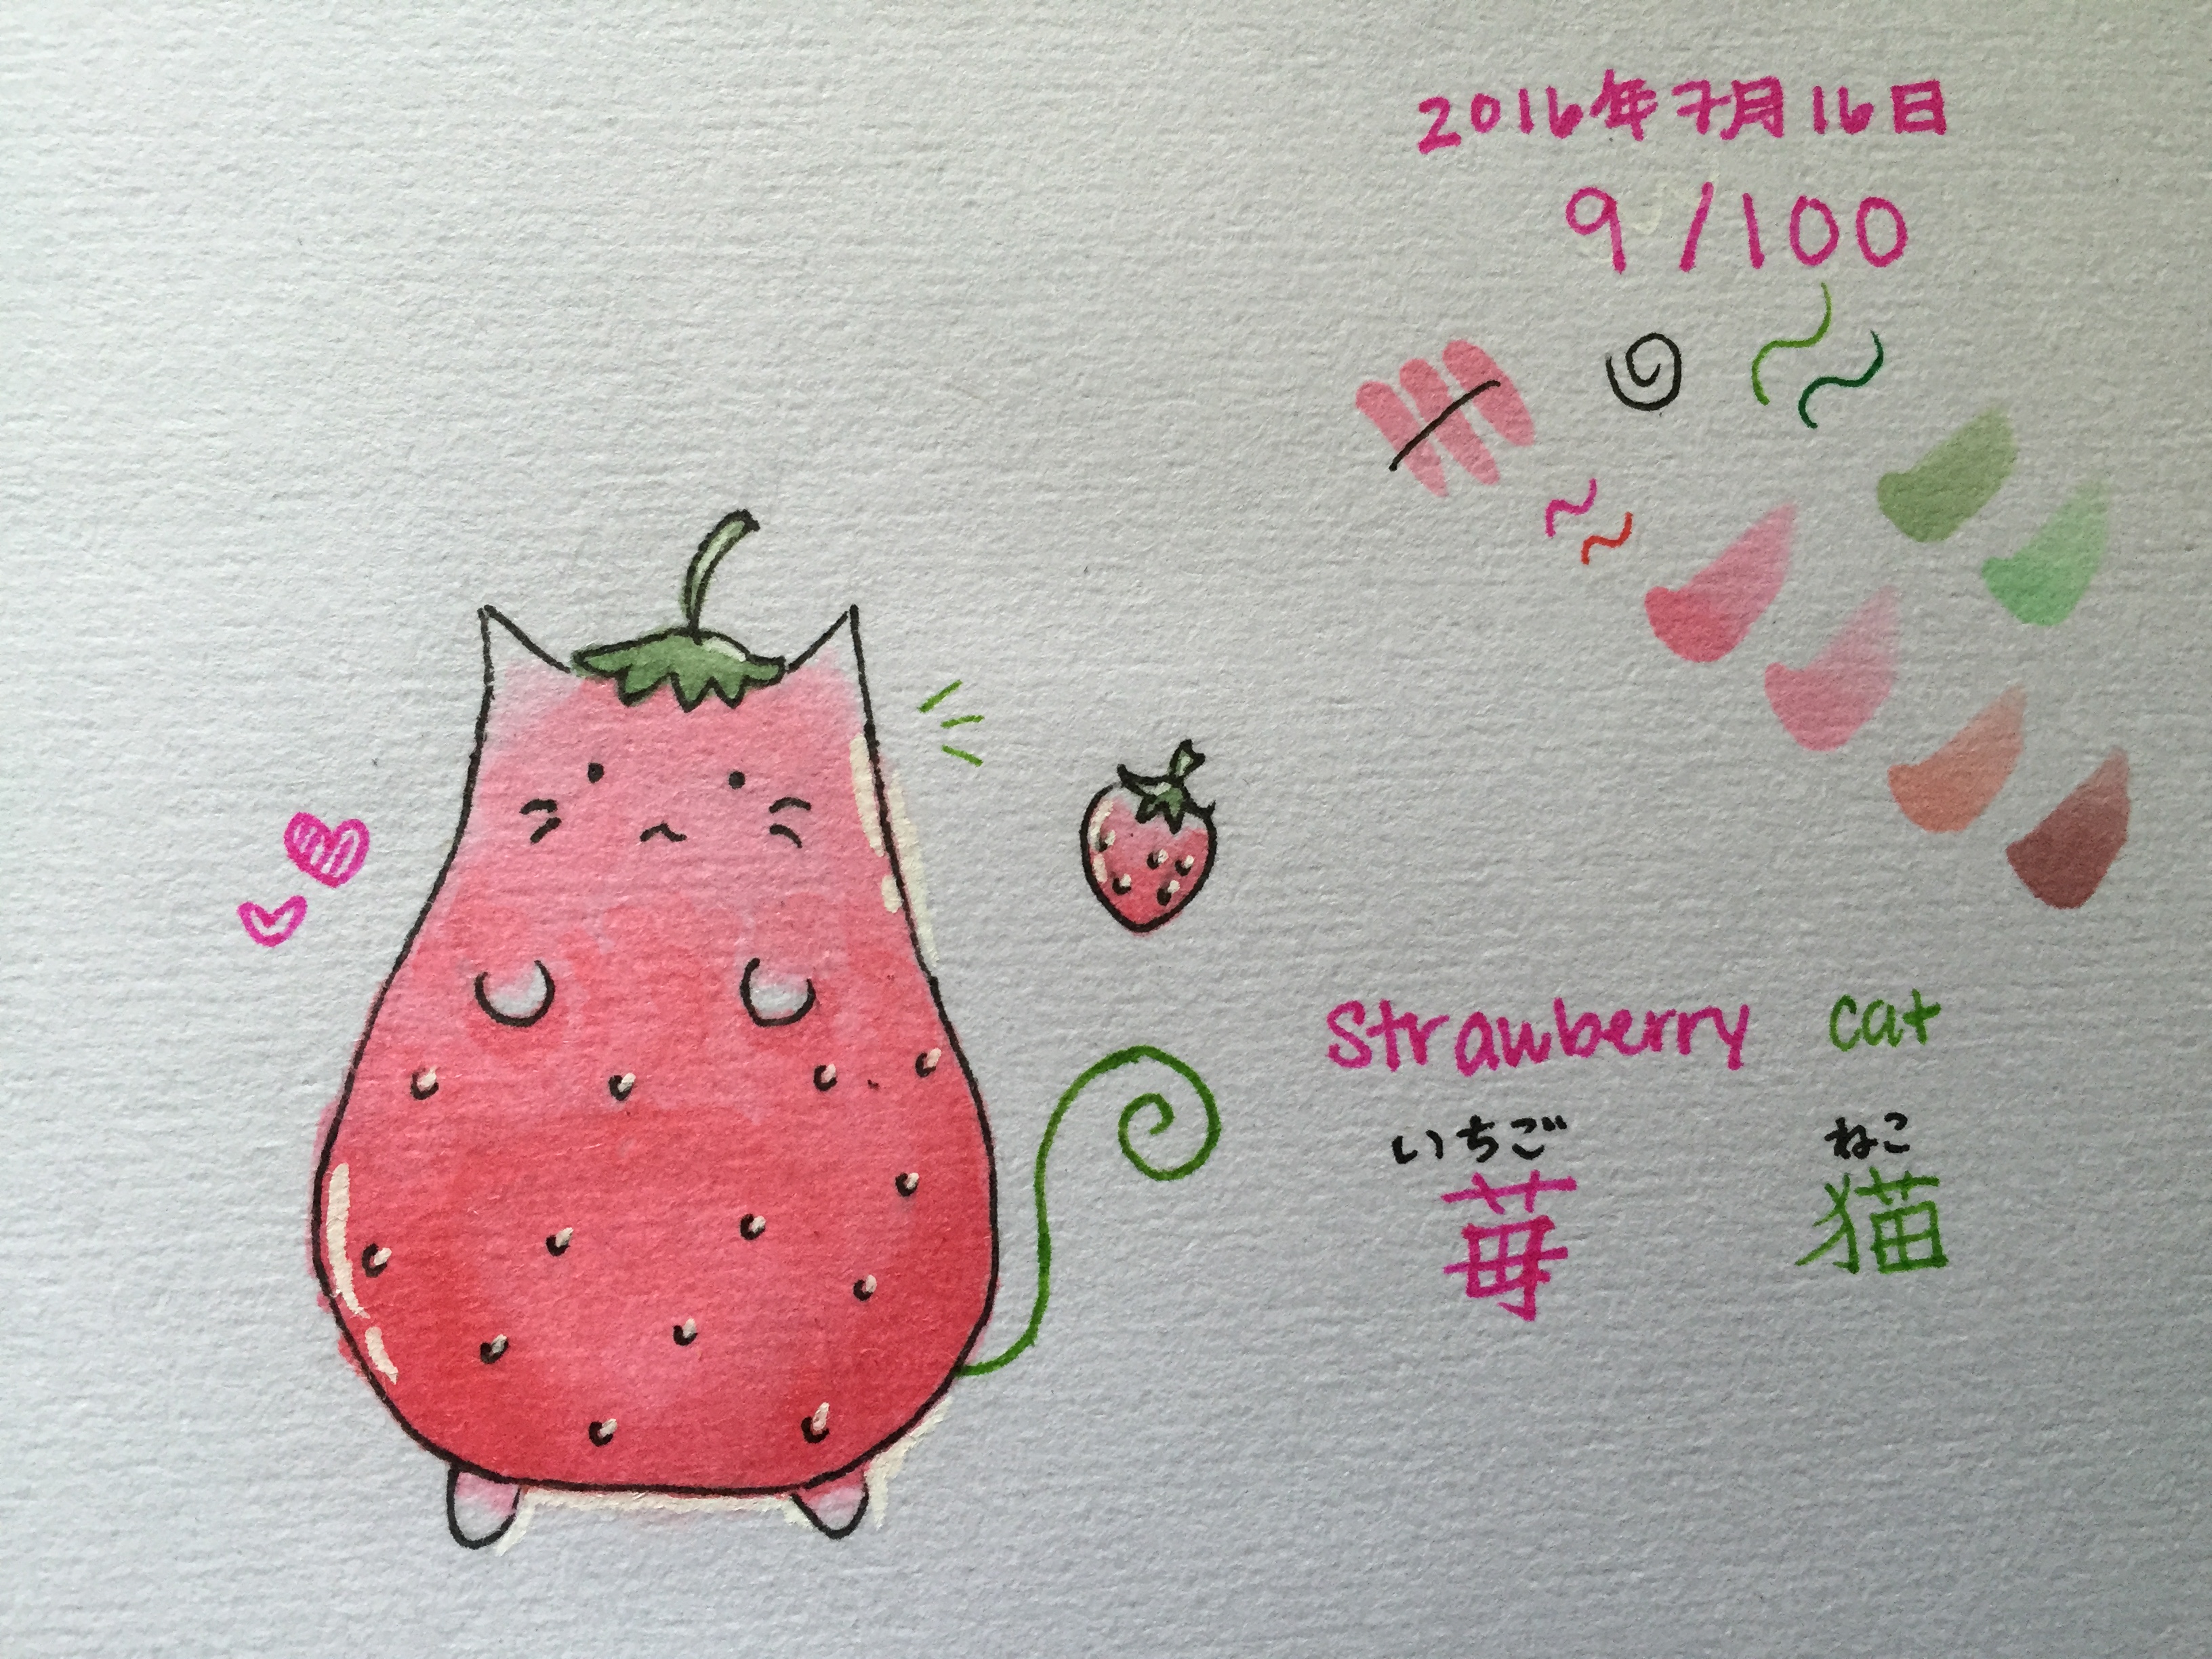 2016年7月16日
9/100
Strawberry cat
いちご ねこ
苺 猫